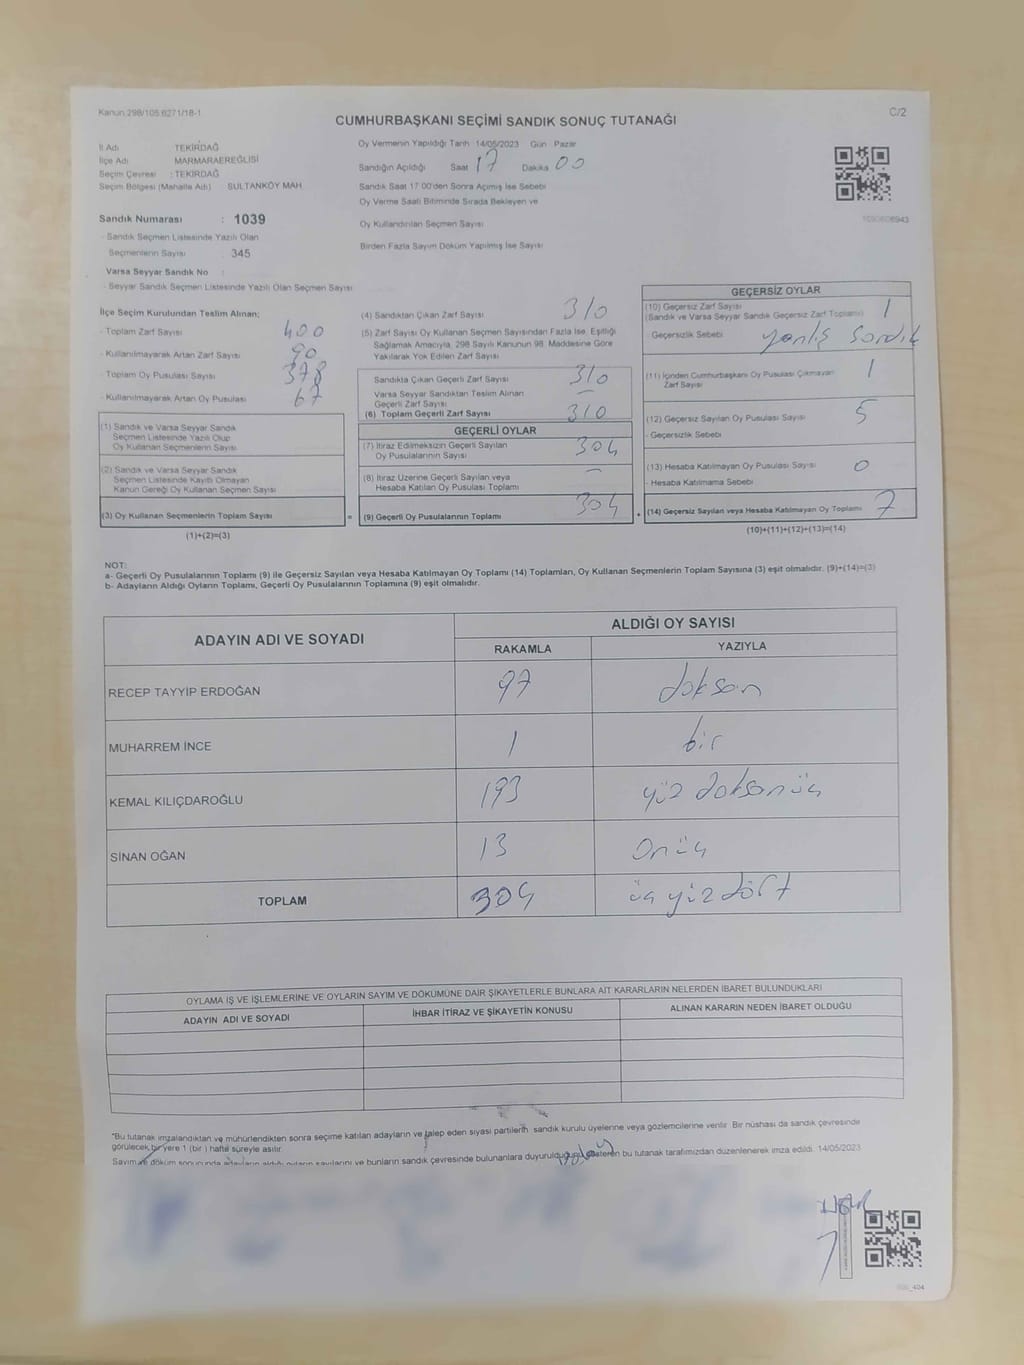 Kanun:298/105 6271/18-1
C/2
CUMHURBAŞKANI SEÇİMİ SANDIK SONUÇ TUTANAĞI
İl Adı TEKİRDAĞ
İlçe Adı MARMARAEREĞLİSİ
Seçim Çevresi : TEKİRDAĞ
Seçim Bölgesi (Mahalle Adı) SULTANKÖY MAH.
Sandık Numarası : 1039
- Sandık Seçmen Listesinde Yazılı Olan
Seçmenlerin Sayısı 345
Varsa Seyyar Sandık No :
- Seyyar Sandık Seçmen Listesinde Yazılı Olan Seçmen Sayısı
Oy Vermenin Yapıldığı Tarih 14/05/2023 Gün Pazar
Sandığın Açıldığı Saat 17 Dakika 00
Sandık Saat 17:00'den Sonra Açımış İse Sebebi
Oy Verme Saati Bitiminde Sırada Bekleyen ve
Oy Kullandırılan Seçmen Sayısı
Birden Fazla Sayım Döküm Yapılmış İse Sayısı
İlçe Seçim Kurulundan Teslim Alınan;
- Toplam Zarf Sayısı 400
- Kullanılmayarak Artan Zarf Sayısı 90
- Toplam Oy Pusulası Sayısı 378
- Kullanılmayarak Artan Oy Pusulası 67
(1) Sandık ve Varsa Seyyar Sandık
Seçmen Listesinde Yazılı Olup
Oy Kullanan Seçmenlerin Sayısı
(2) Sandık ve Varsa Seyyar Sandık
Seçmen Listesinde Kayıtlı Olmayan
Kanun Gereği Oy Kullanan Seçmen Sayısı
(3) Oy Kullanan Seçmenlerin Toplam Sayısı
=
(1)+(2)=(3)
(4) Sandıktan Çıkan Zarf Sayısı 310
(5) Zarf Sayısı Oy Kullanan Seçmen Sayısından Fazla İse, Eşitliği
Sağlamak Amacıyla, 298 Sayılı Kanunun 98. Maddesine Göre
Yakılarak Yok Edilen Zarf Sayısı
Sandıkta Çıkan Geçerli Zarf Sayısı 310
Varsa Seyyar Sandıktan Teslim Alınan
Geçerli Zarf Sayısı –
(6) Toplam Geçerli Zarf Sayısı 310
GEÇERLİ OYLAR
(7) İtiraz Edilmeksizin Geçerli Sayılan
Oy Pusulalarının Sayısı 304
(8) İtiraz Üzerine Geçerli Sayılan veya
Hesaba Katılan Oy Pusulası Toplamı –
(9) Geçerli Oy Pusulalarının Toplamı 304
+
GEÇERSİZ OYLAR
(10) Geçersiz Zarf Sayısı
(Sandık ve Varsa Seyyar Sandık Geçersiz Zarf Toplamı) 1
Geçersizlik Sebebi yanlış sandık
(11) İçinden Cumhurbaşkanı Oy Pusulası Çıkmayan
Zarf Sayısı 1
(12) Geçersiz Sayılan Oy Pusulası Sayısı 5
- Geçersizlik Sebebi
(13) Hesaba Katılmayan Oy Pusulası Sayısı 0
- Hesaba Katılmama Sebebi
(14) Geçersiz Sayılan veya Hesaba Katılmayan Oy Toplamı 7
(10)+(11)+(12)+(13)=(14)
NOT:
a- Geçerli Oy Pusulalarının Toplamı (9) ile Geçersiz Sayılan veya Hesaba Katılmayan Oy Toplamı (14) Toplamları, Oy Kullanan Seçmenlerin Toplam Sayısına (3) eşit olmalıdır. (9)+(14)=(3)
b- Adayların Aldığı Oyların Toplamı, Geçerli Oy Pusulalarının Toplamına (9) eşit olmalıdır.
ADAYIN ADI VE SOYADI ALDIĞI OY SAYISI
RAKAMLA YAZIYLA
RECEP TAYYİP ERDOĞAN 97 doksan
MUHARREM İNCE 1 bir
KEMAL KILIÇDAROĞLU 193 yüz doksanüç
SİNAN OĞAN 13 onüç
TOPLAM 304 üç yüz dört
OYLAMA İŞ VE İŞLEMLERİNE VE OYLARIN SAYIM VE DÖKÜMÜNE DAİR ŞİKAYETLERLE BUNLARA AİT KARARLARIN NELERDEN İBARET BULUNDUKLARI
ADAYIN ADI VE SOYADI İHBAR İTİRAZ VE ŞİKAYETİN KONUSU ALINAN KARARIN NEDEN İBARET OLDUĞU
*Bu tutanak imzalandıktan ve mühürlendikten sonra seçime katılan adayların ve talep eden siyasi partilerin sandık kurulu üyelerine veya gözlemcilerine verilir. Bir nüshası da sandık çevresinde
görülecek bir yere 1 (bir) hafta süreyle asılır.
Sayım ve döküm sonucunda adayların aldığı oyların sayılarını ve bunların sandık çevresinde bulunanlara duyurulduğunu gösteren bu tutanak tarafımızdan düzenlenerek imza edildi. 14/05/2023